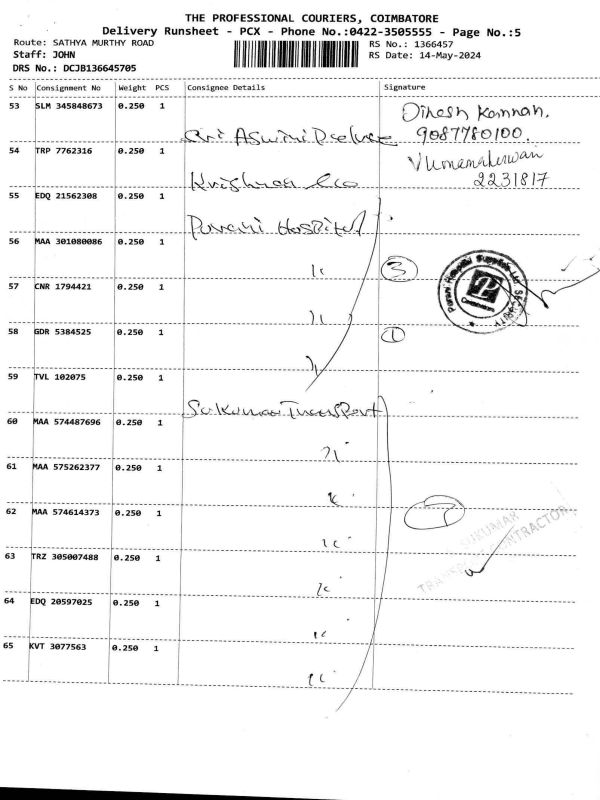 THE PROFESSIONAL COURIERS, COIMBATORE
Delivery Runsheet - PCX - Phone No.:0422-3505555 - Page No.:5
Route: SATHYA MURTHY ROAD
RS No.: 1366457
Staff: JOHN
RS Date: 14-May-2024
DRS No.: DCJB136645705
S No Consignment No Weight PCS Consignee Details Signature
53 SLM 345848673 0.250 1
Dinesh Kannan.
Sri Aswini
9087780100
54 TRP 7762316 0.250 1
Krishna &co
2231817
55 EDQ 21562308 0.250 1
Purani Hospital
56 MAA 301080086 0.250 1
"
3
57 CNR 1794421 0.250 1
"
58 GDR 5384525 0.250 1
1
"
59 TVL 102075 0.250 1
Sukumar Transport
60 MAA 574487696 0.250 1
"
61 MAA 575262377 0.250 1
"
62 MAA 574614373 0.250 1
"
SUKUMAR
TRANSPORT CONTRACTOR
63 TRZ 305007488 0.250 1
"
64 EDQ 20597025 0.250 1
"
65 KVT 3077563 0.250 1
"